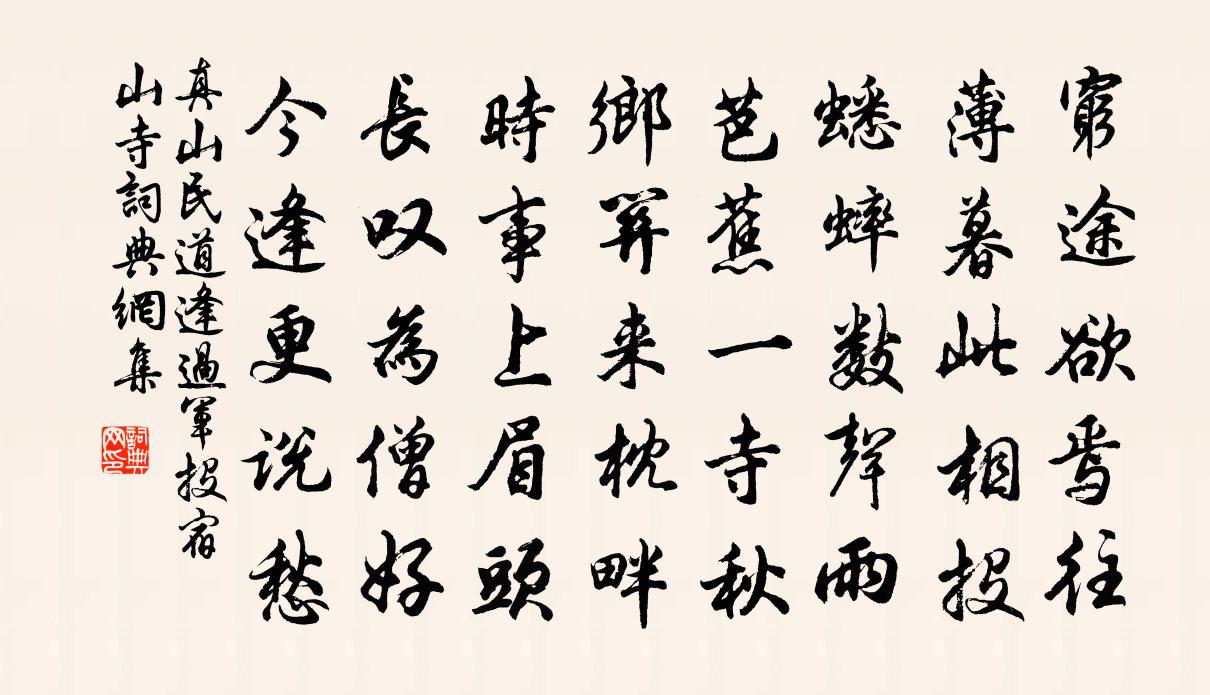 窮途欲焉往
薄暮此相投
蟋蟀數聲雨
芭蕉一寺秋
鄉關来枕畔
時事上眉頭
長叹為僧好
今逢更说愁
真山民道逢過軍投宿
山寺詞典網集
詞典网印